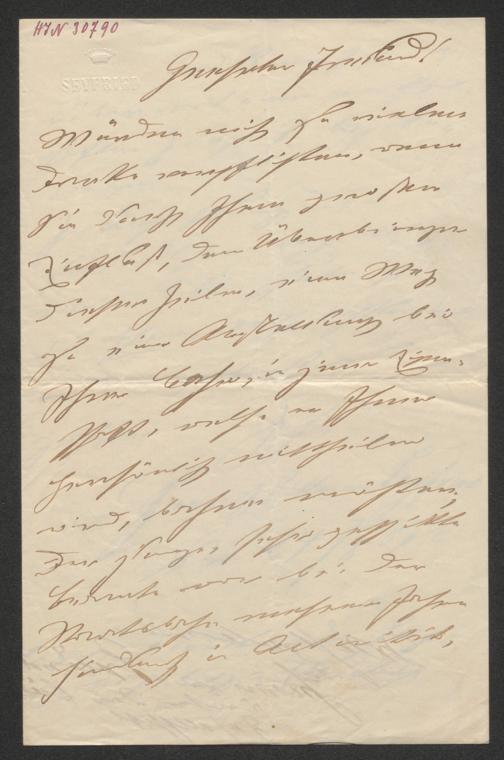 HIN 30790
SEYFRIED
Geehrter Freund!
Würden mich zu vielem
Danke verpflichten, wenn
Sie durch Ihren großen
Einfluß, dem Überbringer
dieser Zeilen, einen Weg
zu einer Anstellung bei
Ihrer Bahn, in jener Eigen-
schaft, welche er Ihnen
persönlich mittheilen
wird, bahnen möchten.
Der junge sehr geschickte
Beamte war bei der
Staatsbahn mehrere Jahre
hindurch in Activität,